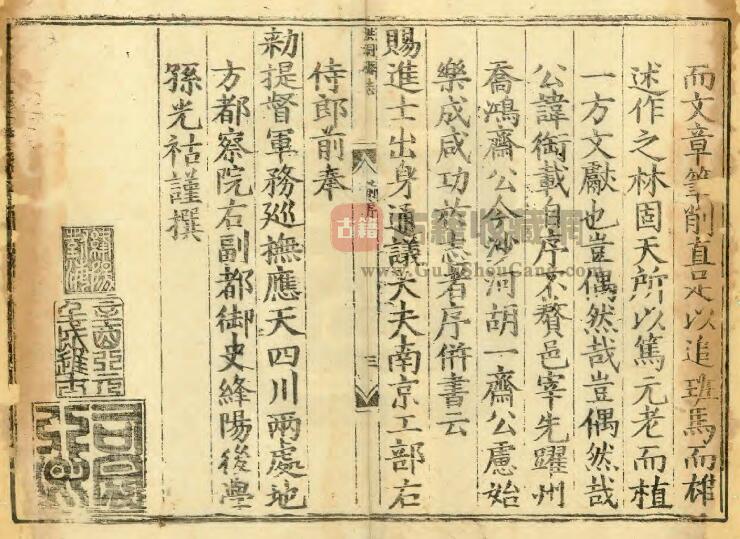 而文章筆削直足以追班馬而雄
述作之林固天所以篤元老而植
一方文獻也豈偶然哉豈偶然哉
公諱銜載自序不贅邑宰先躍州
喬鴻齋公今沙河胡一齋公慮始
樂成咸功茲志者序併書云
賜進士出身通議大夫南京工部右
侍郎前奉
勑提督軍務巡撫應天四川兩處地
方都察院右副都御史絳陽後學
孫光祜謹撰
三
古籍
古籍收藏網
www.GuJiShouCang.com